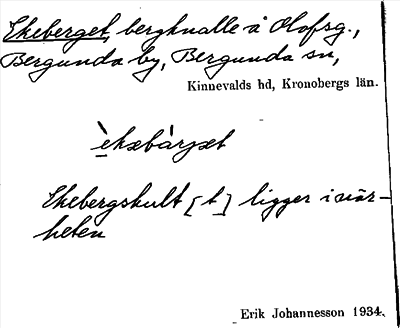 Ekeberget, bergknalle å Olofsg.,
Bergunda by, Bergunda sn,
Kinnevalds hd, Kronobergs län.
èkæbàrjæt
Ekebergskult [t] ligger i när-
heten
Erik Johannesson 1934.